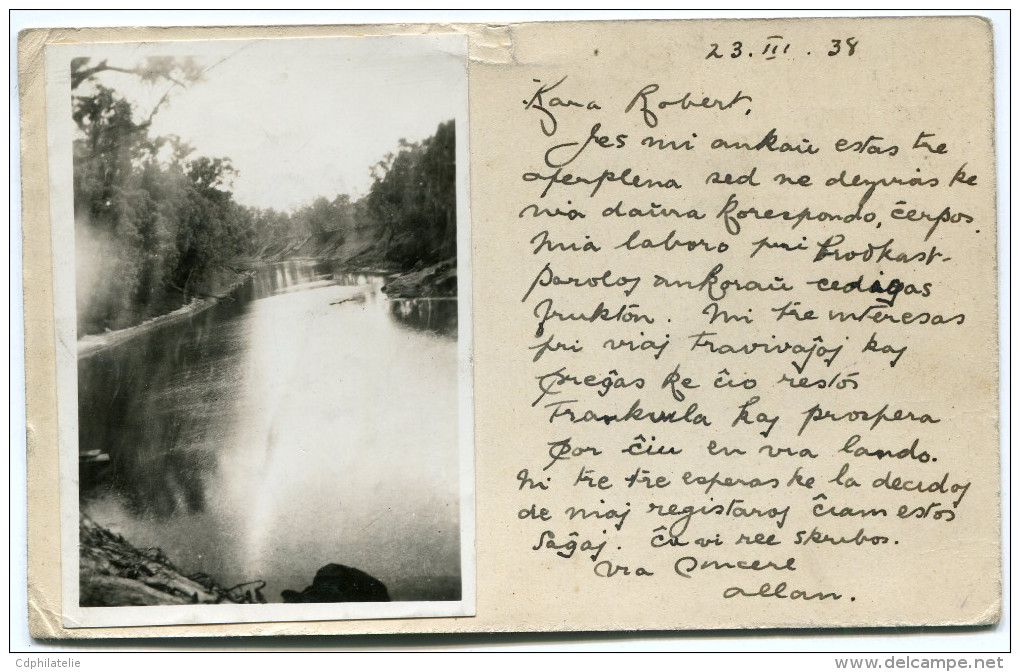 23. III. 38
Kara Robert,
Jes mi ankaŭ estas tre
aferplena sed ne dezuras ke
nia daŭra korespondo, ĉerpos.
Mia laboro pri brodkast-
paroloj ankoraŭ cedigas
fruktôn. Mi tre interesas
pri viaj travivaĵoj kaj
preĝas ke ĉio restôs
trankvila kaj prospera
por ĉiu en via lando.
Mi tre tre esperas ke la decidoj
de niaj registaroj ĉiam estos
saĝaj. Ĉu vi ree skribos.
Via sincere
Allan.
Cdphilatelie
www.delcampe.net